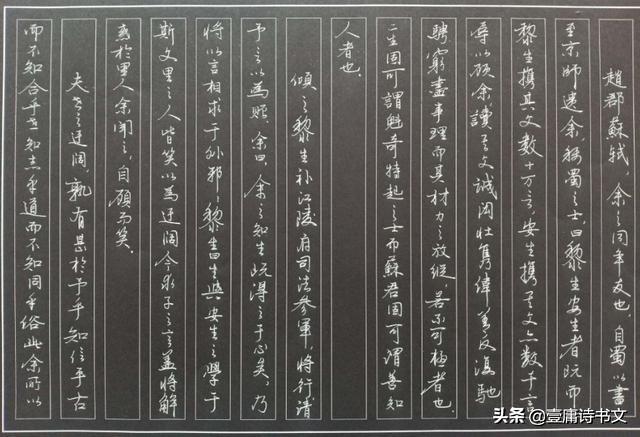 趙郡蘇軾，余之同年友也。自蜀以書
至京師遺余，稱蜀之士，曰黎生安生者既而
黎生攜其文數十万言，安生攜其文亦數千言，
辱以顧余。讀其文誠闳壯雋偉，善反復馳
騁窮盡事理，而其材力之放縱，若不可極者也。
二生固可謂魁奇特起之士，而蘇君固可謂善知
人者也。
傾之黎生補江陵府司法參軍，將行請
予言以為贈。余曰，余之知生既得之于心矣，乃
將以言相求于外邪？黎生曰生與安生之學于
斯文里之人皆笑以為迂闊今求子之言蓋將解
惑於里人余聞之，自顧而笑。
夫世之迂闊，孰有甚於予乎知信乎古
而不知合乎世知志乎道而不知同乎俗此余所以
头条 @壹庸诗书文